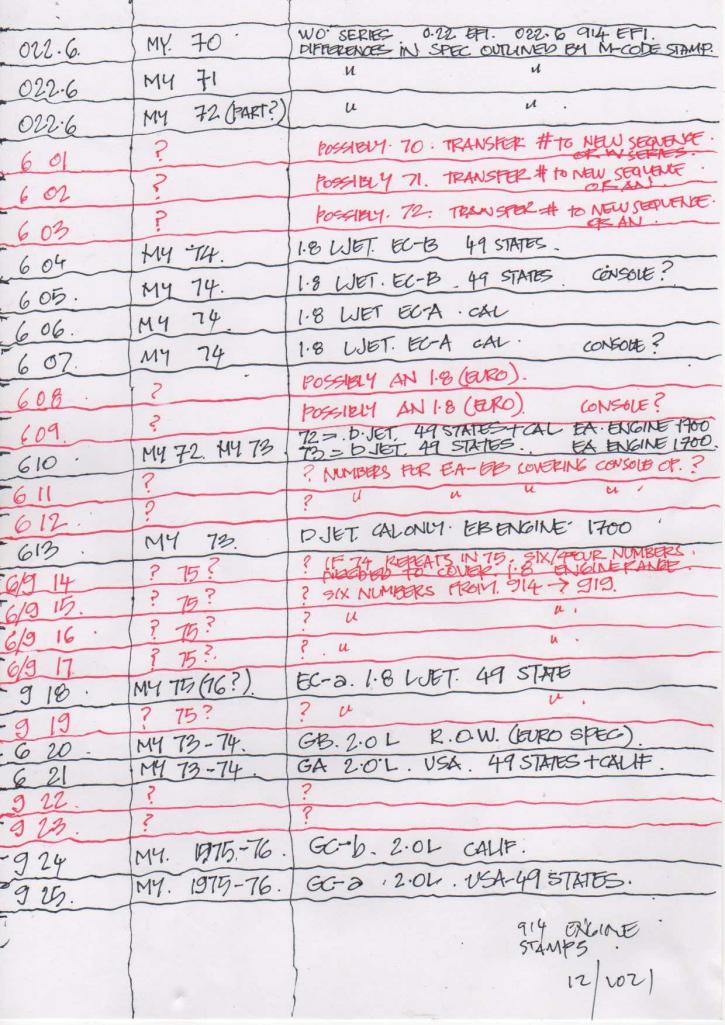 022.6. MY. 70 WO SERIES 0.22 EFI. 022.6 914 EFI.
DIFFERENCES IN SPEC OUTLINED BY M-CODE STAMP.
022.6 MY 71 " "
022.6 MY 72 (PART?) " " .
6 01 ? POSSIBLY. 70. TRANSFER # TO NEW SEQUENCE
OF W SERIES.
6 02 ? POSSIBLY 71. TRANSFER # TO NEW SEQUENCE
OF AN.
6 03 ? POSSIBLY. 72. TRANSFER # TO NEW SEQUENCE.
OR AN.
6 04 MY '74. 1.8 LJET. EC-B 49 STATES.
6 05. MY 74. 1.8 LJET. EC-B. 49 STATES CONSOLE?
6 06. MY 74. 1.8 LJET EC-A . CAL
6 07. MY 74 1.8 LJET. EC-A CAL CONSOLE?
6 08. ? POSSIBLY AN 1.8 (EURO).
6 09. ? POSSIBLY AN 1.8 (EURO). CONSOLE?
610 MY 72. MY 73. 72 = D.JET. 49 STATES+CAL EA. ENGINE 1700
73 = D.JET. 49 STATES. EA ENGINE 1700.
6 11 ? ? NUMBERS FOR EA-EB COVERING CONSOLE OP. ?
6 12 ? ? " " " " .
613 MY 73. D JET CAL ONLY. EB ENGINE 1700
6/9 14 ? 75? ? IF 74 REPEATS IN 75, SIX/FOUR NUMBERS
NEEDED TO COVER 1.8 ENGINE RANGE.
6/9 15 ? 75? ? SIX NUMBERS FROM. 914 → 919.
6/9 16 ? 75? ? " " .
6/9 17 ? 75? ? " " .
9 18 . MY 75 (76?) EC-a. 1.8 LJET. 49 STATE
9 19 ? 75? ? " " .
6 20 MY 73-74. GB. 2.0 L R.O.W. (EURO SPEC).
6 21 MY 73-74. GA 2.0 L. USA. 49 STATES + CALIF.
9 22. ? ?
9 23. ? ?
9 24 MY. 1975-76. GC-b. 2.0L CALIF.
9 25. MY. 1975-76. GC-a . 2.0L . USA-49 STATES.
914 ENGINE
STAMPS.
12/2021